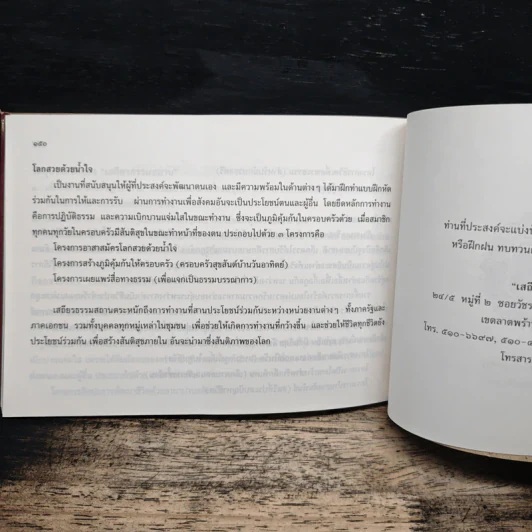 ๑๕๓
โลกสวยด้วยน้ำใจ
เป็นงานที่สนับสนุนให้ผู้ที่ประสงค์จะพัฒนาตนเอง และมีความพร้อมในด้านต่างๆ ได้มาฝึกทำแบบฝึกหัด
ร่วมกันในการให้และการรับ ผ่านการทำงานเพื่อสังคมอันจะเป็นประโยชน์ตนและผู้อื่น โดยยึดหลักการทำงาน
คือการปฏิบัติธรรม และความเบิกบานแจ่มใสในขณะทำงาน ซึ่งจะเป็นภูมิคุ้มกันในครอบครัวด้วย เมื่อสมาชิก
ทุกคนทุกวัยในครอบครัวมีสันติสุขในขณะทำหน้าที่ของตน ประกอบไปด้วย ๓ โครงการคือ
โครงการอาสาสมัครโลกสวยด้วยน้ำใจ
โครงการสร้างภูมิคุ้มกันให้ครอบครัว (ครอบครัวสุขสันต์บ้านวันอาทิตย์)
โครงการเผยแพร่สื่อทางธรรม (เพื่อแจกเป็นธรรมบรรณาการ)
เสถียรธรรมสถานตระหนักถึงการทำงานที่สานประโยชน์ร่วมกันระหว่างหน่วยงานต่างๆ ทั้งภาครัฐและ
ภาคเอกชน รวมทั้งบุคคลทุกหมู่เหล่าในชุมชน เพื่อช่วยให้เกิดการทำงานที่กว้างขึ้น และช่วยให้ชีวิตทุกชีวิตยัง
ประโยชน์ร่วมกัน เพื่อสร้างสันติสุขภายใน อันจะนำมาซึ่งสันติภาพของโลก
ท่านที่ประสงค์จะแบ่ง
หรือฝึกฝน ทบทวน
"เสถีย
๒๔/๕ หมู่ที่ ๒ ซอยวัชร
เขตลาดพร้าว
โทร. ๕๑๐-๖๖๙๗, ๕๑๐-
โทรสาร